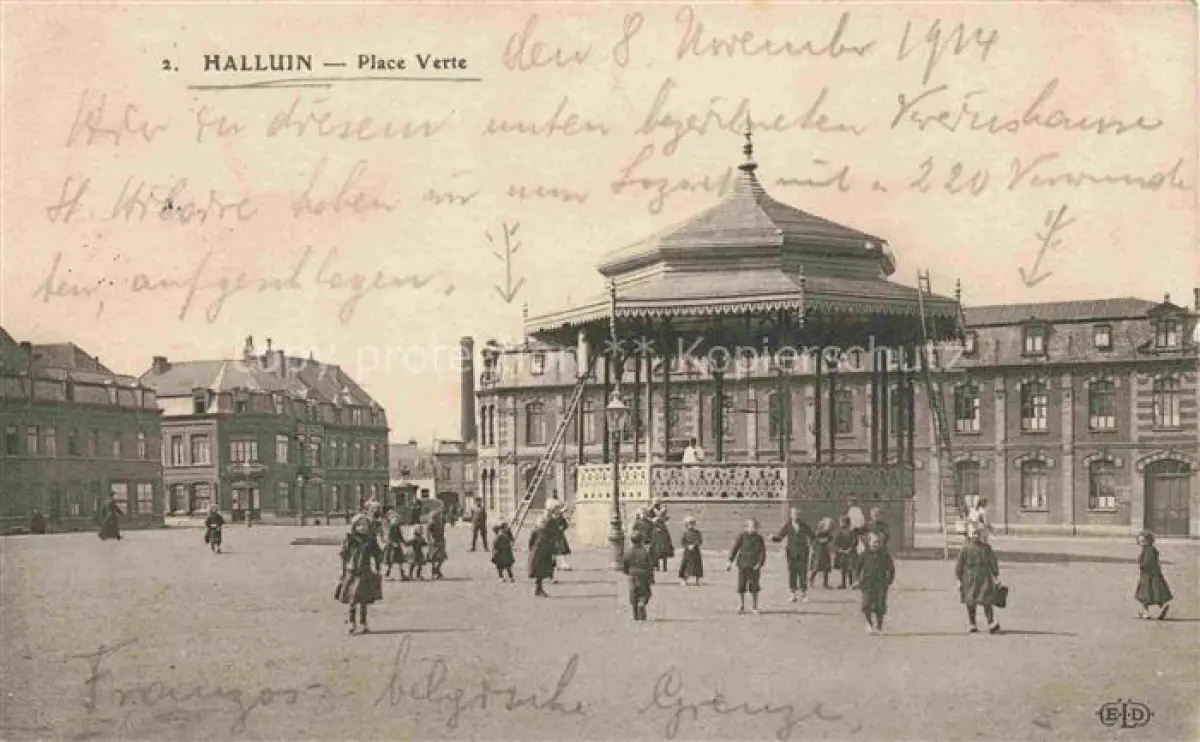 2. HALLUIN — Place Verte
den 8. November 1914
Hier in diesem unten bezeichneten Vereinshause
St. Hilaire haben wir unser Lazarett mit 220 Verwunde
ten, aufgeschlagen.
copy protection ** Kopierschutz
Französ = belgische Grenze
E.L.D